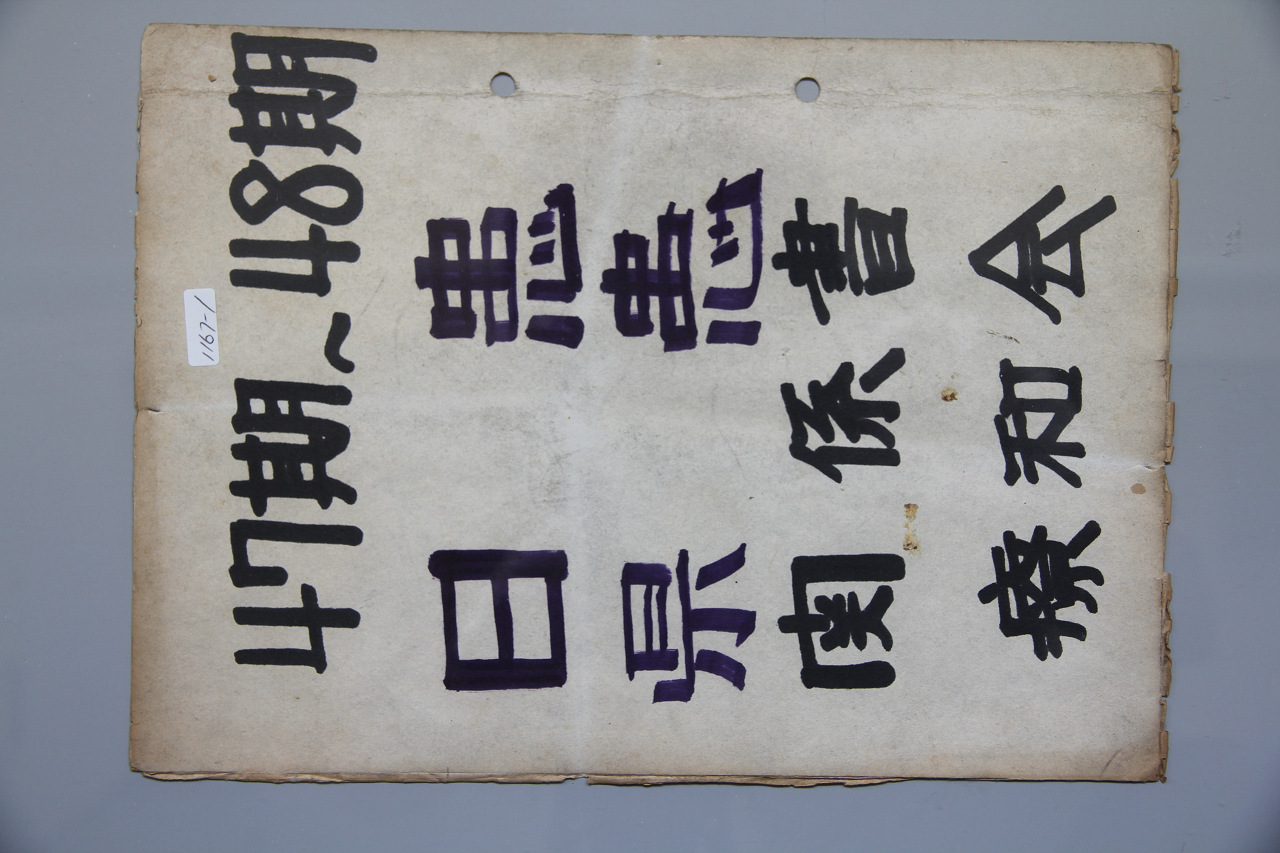 47期〜48期
1167-1
日患
県患
関係書
療和会